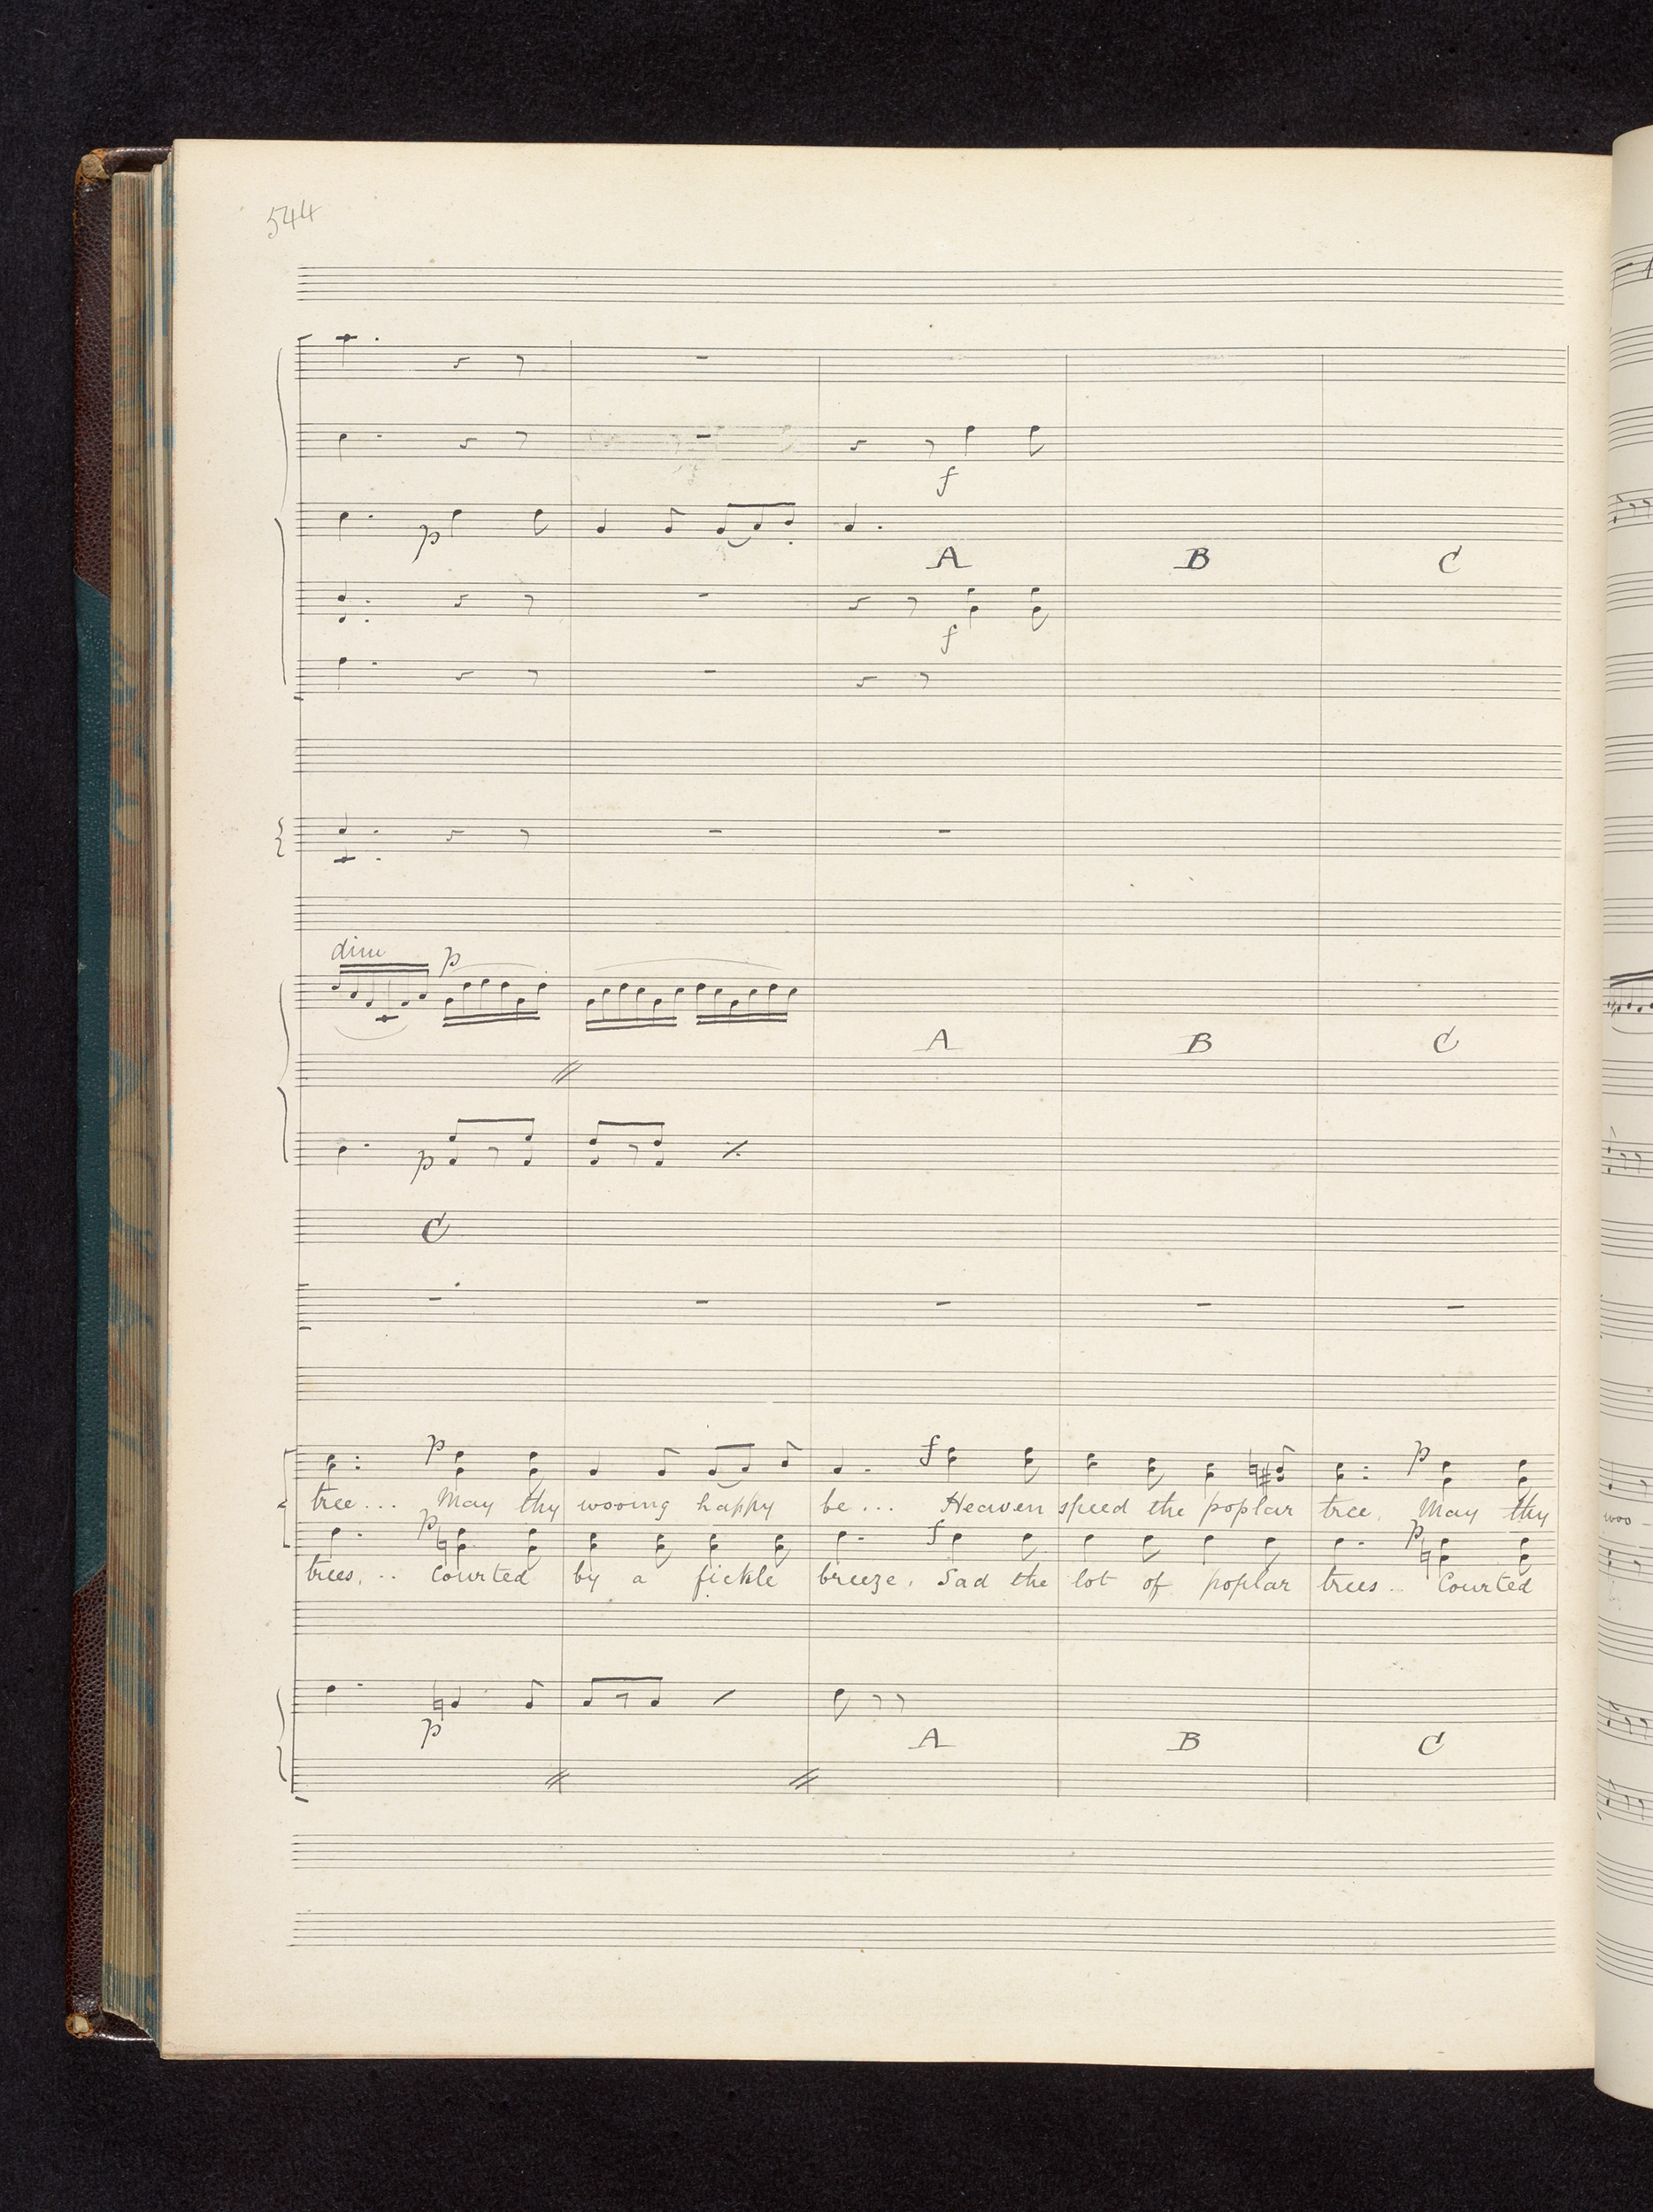 544
f
p
A B C
f
dim p
A B C
p
C
p f p
tree... May thy wooing happy be... Heaven speed the poplar tree, May thy
p f p
trees,.. Courted by a fickle breeze, Sad the lot of poplar trees.. Courted
p
A B C
woo-